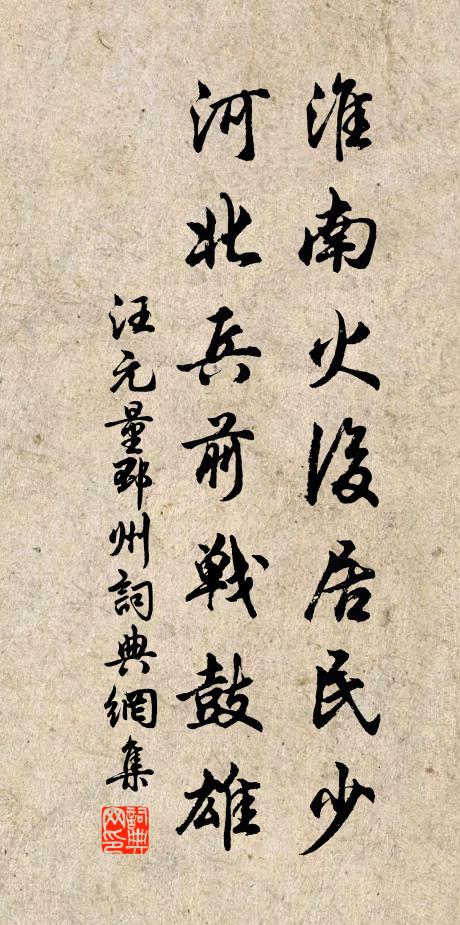 淮南火後居民少
河北兵前戰鼓雄
汪元量邳州詞典網集
詞典網印